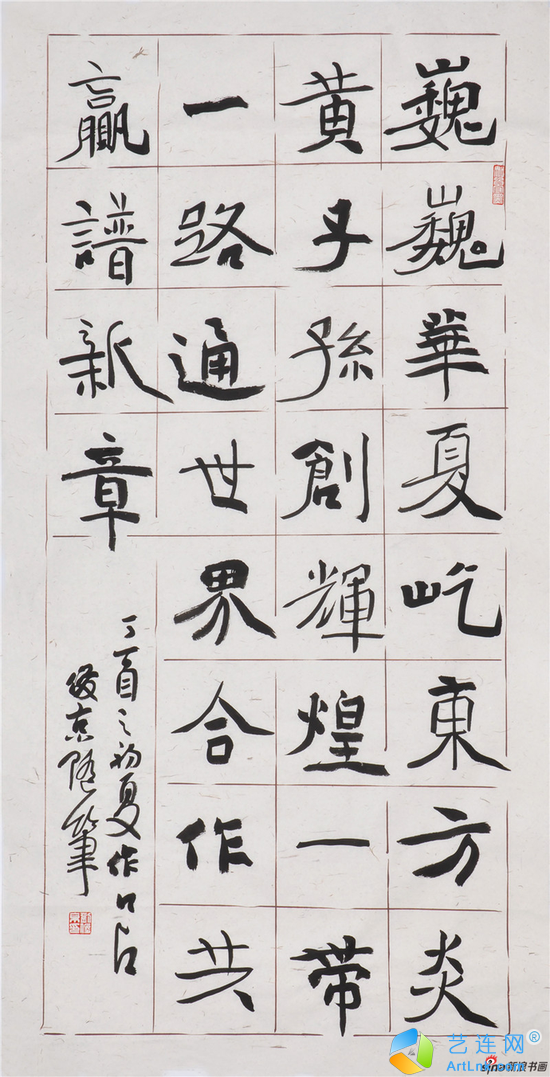 巍巍華夏屹東方炎
黄子孫創輝煌一帶
一路通世界合作共
贏譜新章
丁酉之初夏作口占
京随筆
艺连网®
sina新浪书画